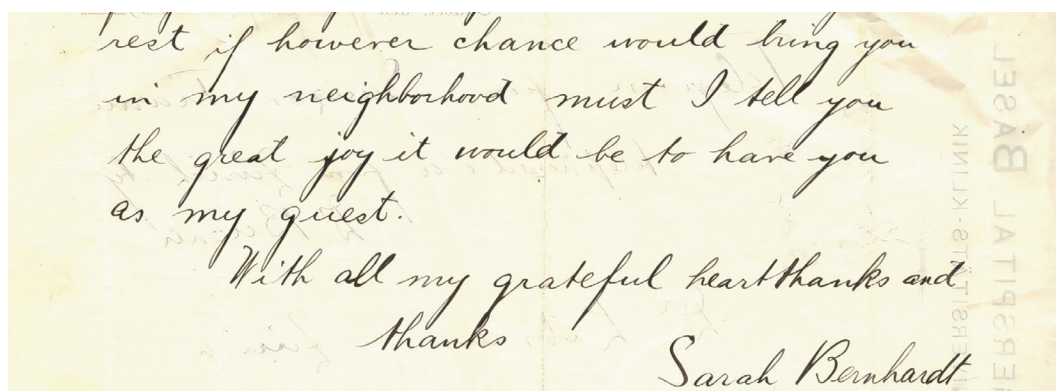 rest if however chance would bring you
in my neighborhood must I tell you
the great joy it would be to have you
as my guest.
With all my grateful heart thanks and
thanks
Sarah Bernhardt
BASEL
KLINIK